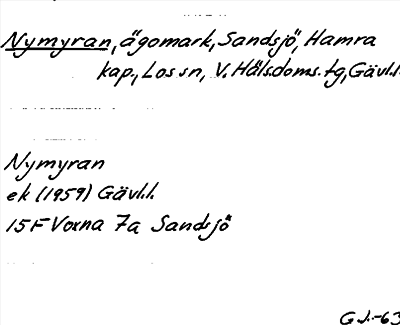 Nymyran, ägomark, Sandsjö, Hamra
kap., Los sn, V. Hälsdoms. tg, Gävl.l.
Nymyran
ek (1959) Gävl.l.
15F Voxna 7a Sandsjö
G.J.-63